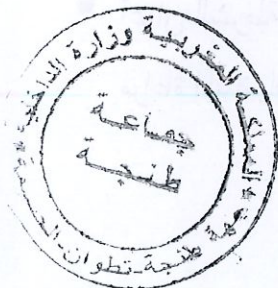 المملكة المغربية وزارة الداخلية
جهة طنجة-تطوان-الحسيمة
جماعة
طنجة